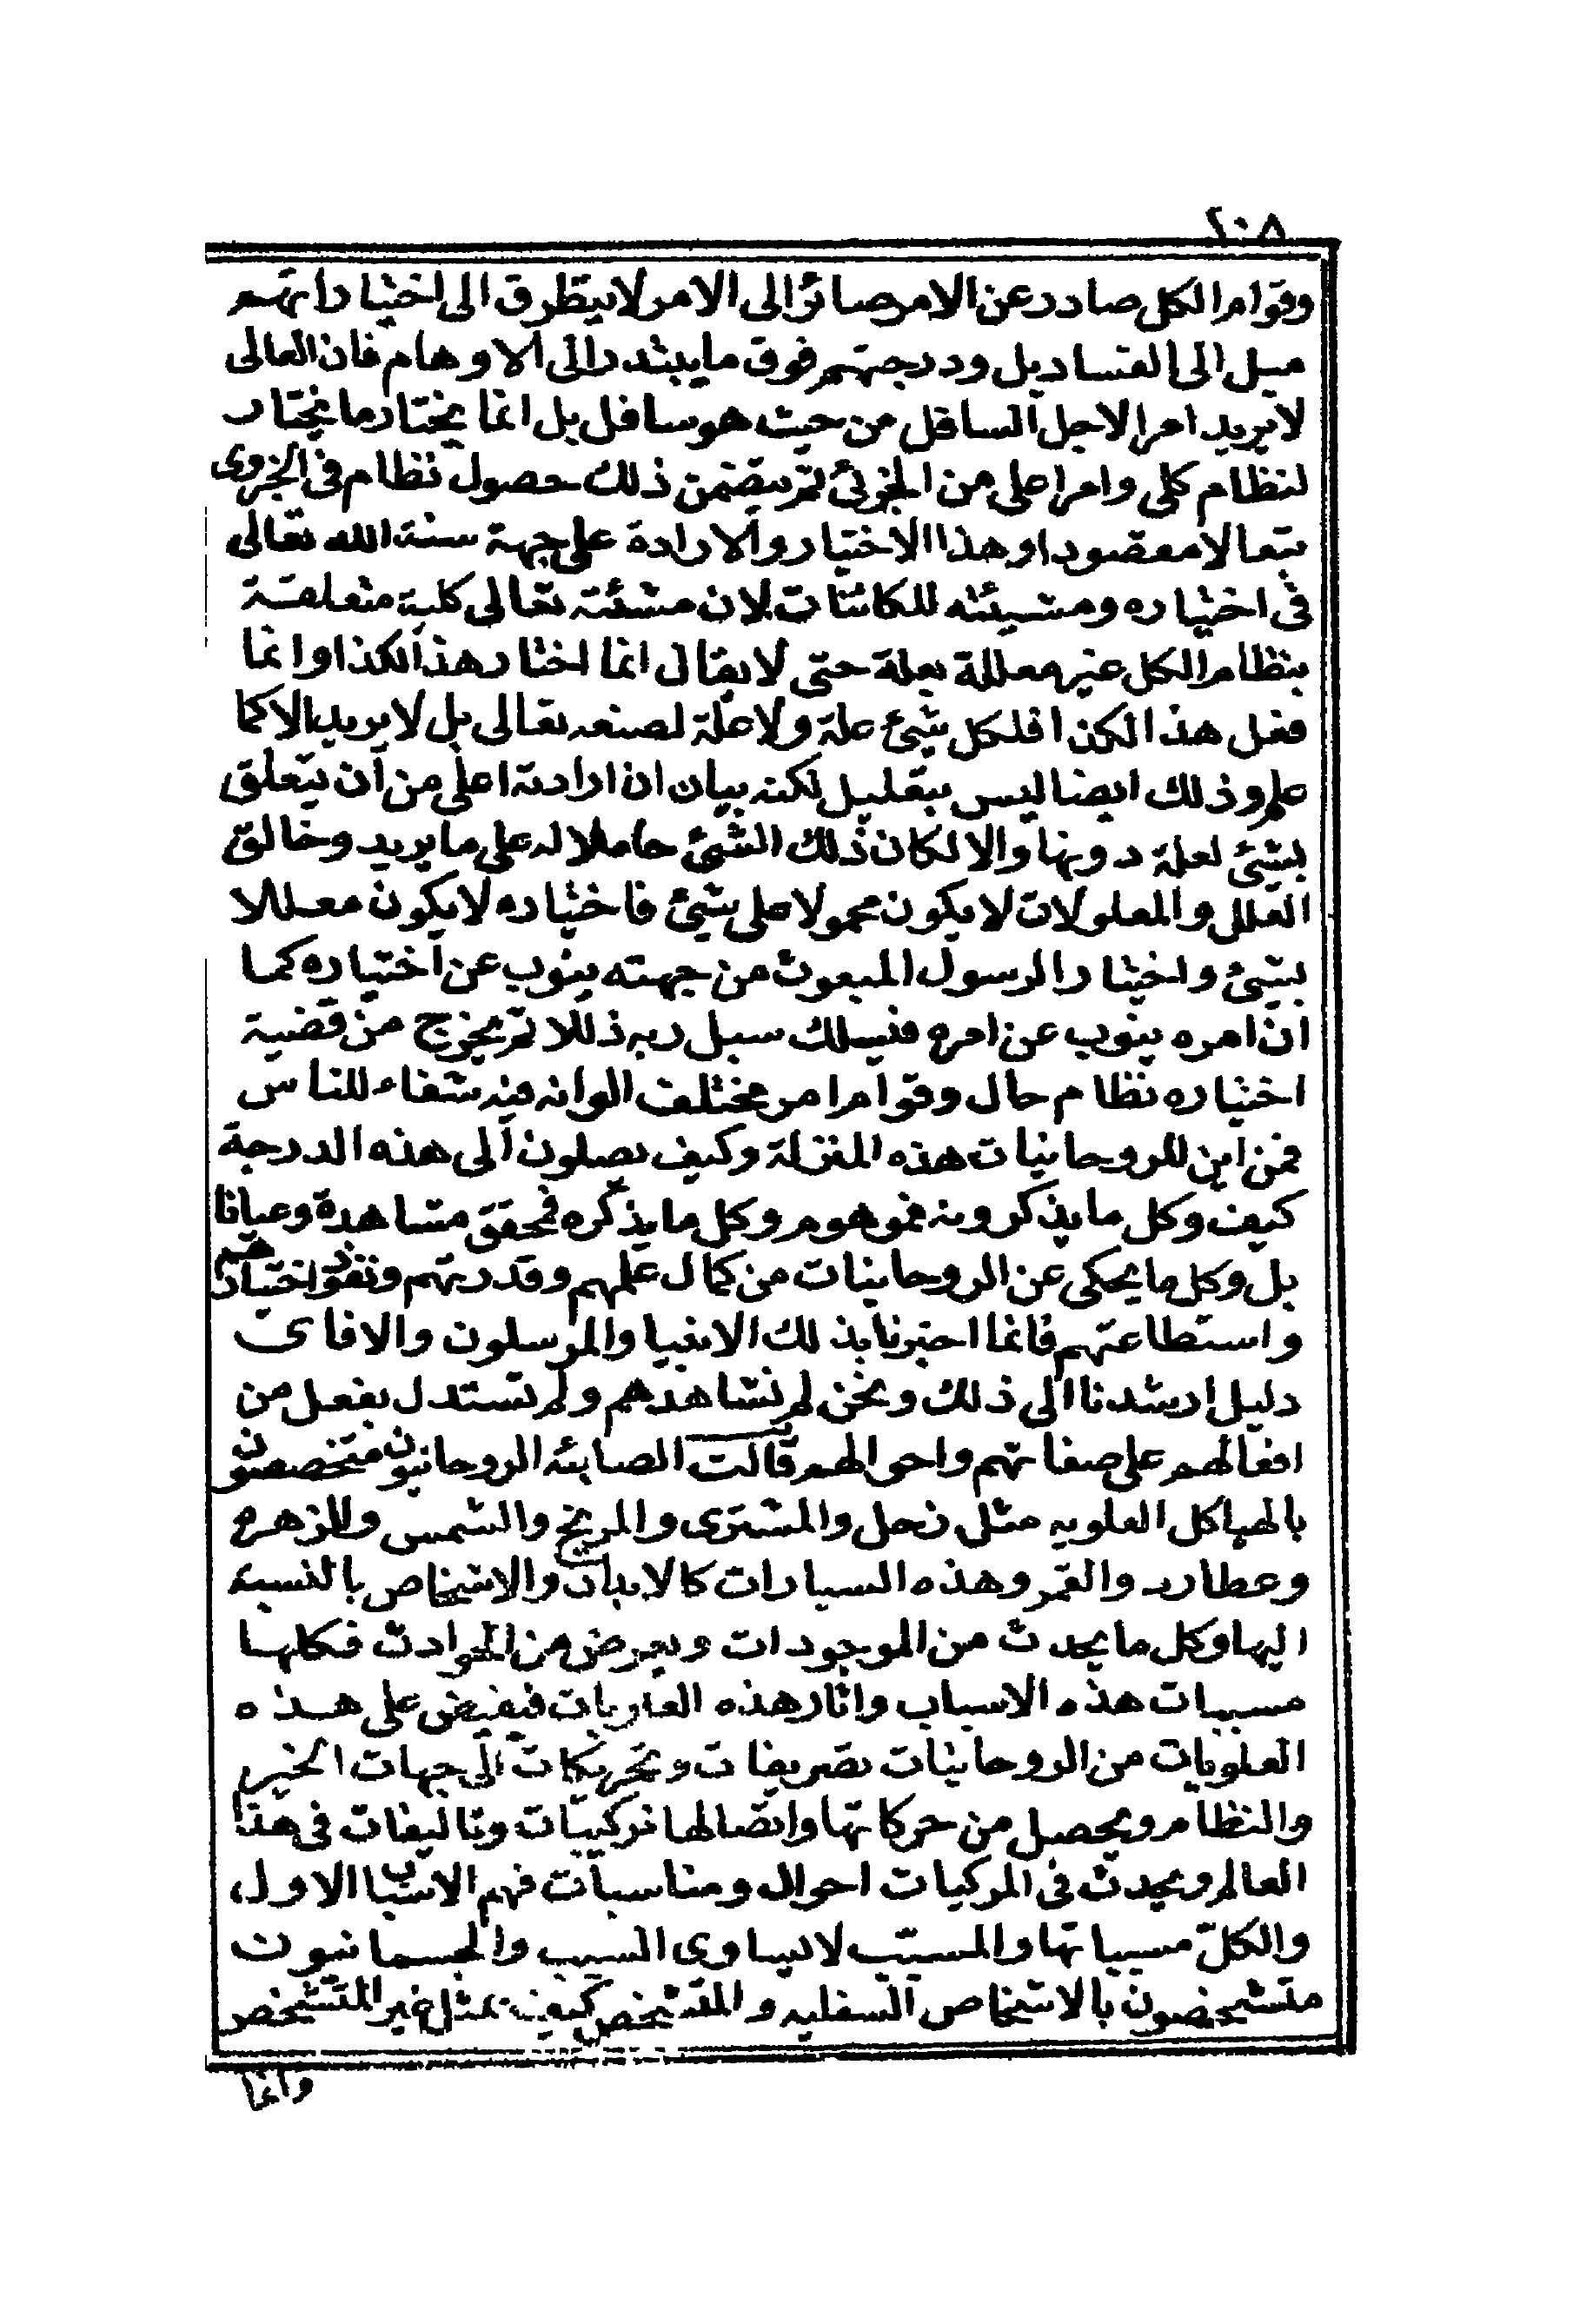 ٢٠٥
وقوام الكل صادر عن الامر صائرا الى الامر لا يتطرق الى اختياراتهم
ميل الى الفساد بل ودرجتهم فوق ما يبتدر الى الاوهام فان العالى
لا يريد امرا لاجل السافل من حيث هو سافل بل انما يختار ما يختار
لنظام كلى وامر اعلى من الجزئى ثم يتضمن ذلك حصول نظام فى الجزوى
تبعا لا مقصودا وهذا الاختيار والارادة على جهة سنة الله تعالى
فى اختياره ومشيئته للكائنات لان مشئته تعالى كلية متعلقة
بنظام الكل غير معللة بعلة حتى لا يقال انما اختار هذا لكذا وانما
فعل هذا لكذا فلكل شئ علة ولا علة لصنعه تعالى بل لا يريد الا كما
علم وذلك ايضا ليس بتعليل لكنه بيان ان ارادته اعلى من ان يتعلق
بشئ لعلة دونها والا لكان ذلك الشئ حاملا له على ما يريد وخالق
العلل والمعلولات لا يكون محمولا على شئ فاختياره لا يكون معللا
بشئ واختيار الرسول المبعوث من جهته ينوب عن اختياره كما
ان امره ينوب عن امره فيسلك سبل ربه ذللا ثم يخرج من قضية
اختياره نظام حال وقوام امر مختلف الوانه فيه شفاء للناس
فمن اين للروحانيات هذه المنزلة وكيف يصلون الى هذه الدرجة
كيف وكل ما يذكرونه فموهوم وكل ما يذكره فمحقق مشاهدة وعيانا
بل وكل ما يحكى عن الروحانيات من كمال علمهم وقدرتهم ونفوذ اختيارهم
واستطاعتهم فانما اخبرنا بذلك الانبيا والمرسلون والا فاى
دليل ارشدنا الى ذلك ونحن لم نشاهدهم ولم نستدل بفعل من
افعالهم على صفاتهم واحوالهم قالت الصابئة الروحانيون متخصصون
بالهياكل العلويه مثل زحل والمشترى والمريخ والشمس والزهره
وعطارد والقمر وهذه السيارات كالابدان والاشخاص بالنسبة
اليها وكل ما يحدث من الموجودات ويعرض من الحوادث فكلها
مسببات هذه الاسباب واثار هذه العلويات فيفيض على هذه
العلويات من الروحانيات تصريفات وتحريكات الى جهات الخير
والنظام ويحصل من حركاتها واتصالها تركيبات وتاليفات فى هذا
العالم ويحدث فى المركبات احوال ومناسبات فهم الاسباب الاول
والكل مسبباتها والمسبب لا يساوى السبب والجسمانيون
متشخصون بالاشخاص السفليه والمتشخص كيف يمثل غير المتشخص
وانما